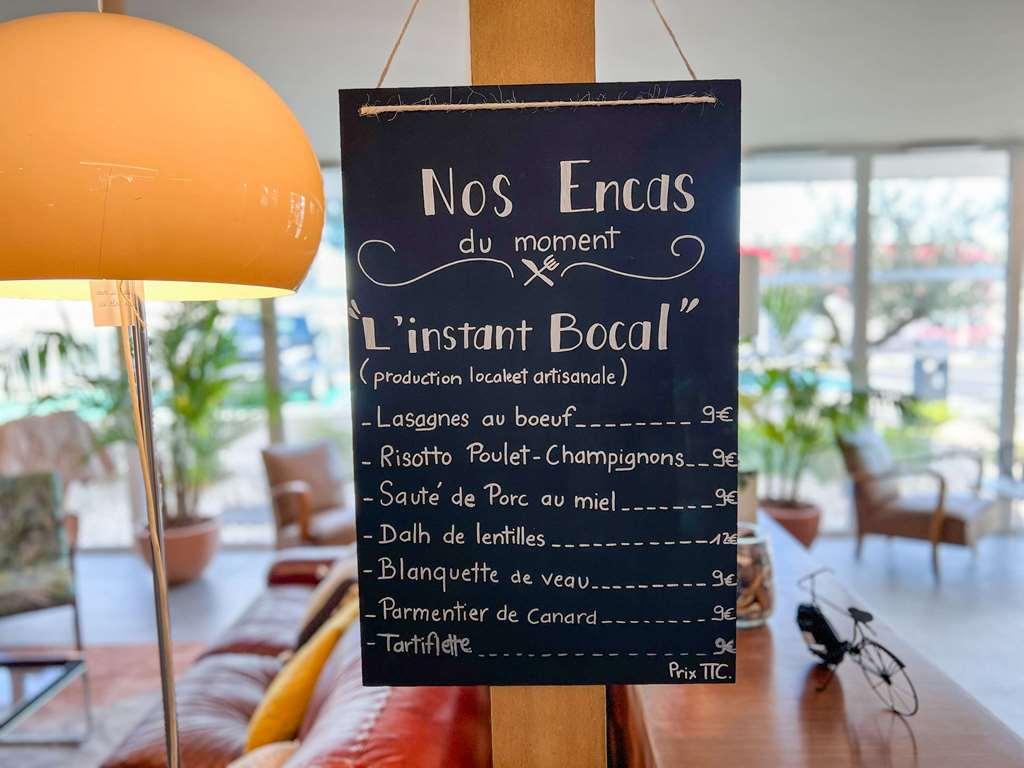 Nos Encas
du moment
"L'instant Bocal"
(production localeet artisanale)
- Lasagnes au boeuf________ 9€
- Risotto Poulet-Champignons__9€
- Sauté de Porc au miel_______9€
- Dalh de lentilles ____________12€
- Blanquette de veau_________ 9€
- Parmentier de Canard_______ 9€
- Tartiflette ________________ 9€
Prix TTC.